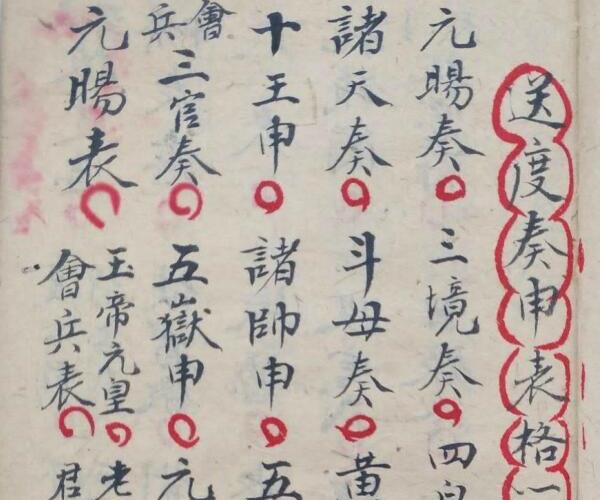 送度奏申表格
元賜奏 三境奏 四
諸天奏 斗母奏 黄
十王申 諸帥申 五
會兵三官奏 五嶽申 元
元賜表 玉帝元皇 老
會兵表 君